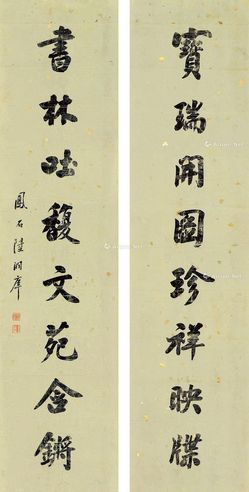 寶瑞開圖珍祥映牒
書林吐馥文苑含鏘
鳳石陸潤庠